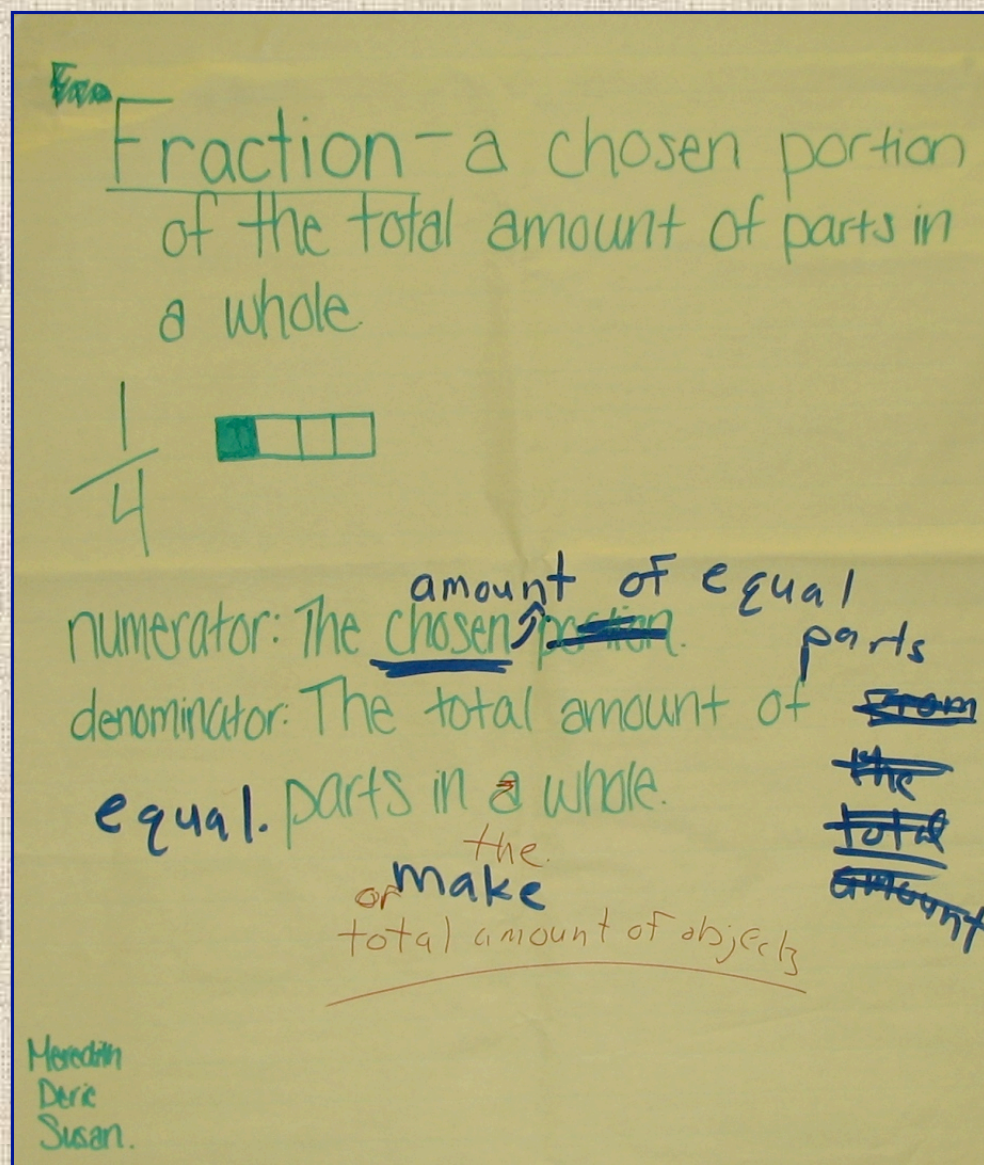 Fraction - a chosen portion
of the total amount of parts in
a whole.
1
4
amount of equal
numerator: The chosen portion.
parts
denominator: The total amount of
from
the
total
amount
equal. parts in a whole.
the.
or make
total amount of objects
Meredith
Deric
Susan.